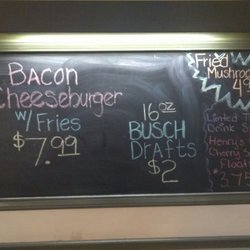 Bacon
Cheeseburger
w/ Fries
$7.99
16 oz
BUSCH
Drafts
$2
Fried
Mushroo
49
Limited T
Drink S
Henry's
Cherry S
Float
3.75